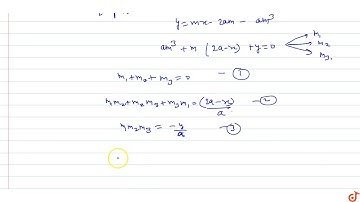 y = mx - 2am - am³
am³ + m (2a-x) + y = 0
m₁
m₂
m₃
m₁ + m₂ + m₃ = 0 — ①
m₁m₂ + m₂m₃ + m₃m₁ = (2a-x)/a — ②
m₁m₂m₃ = -y/a — ③